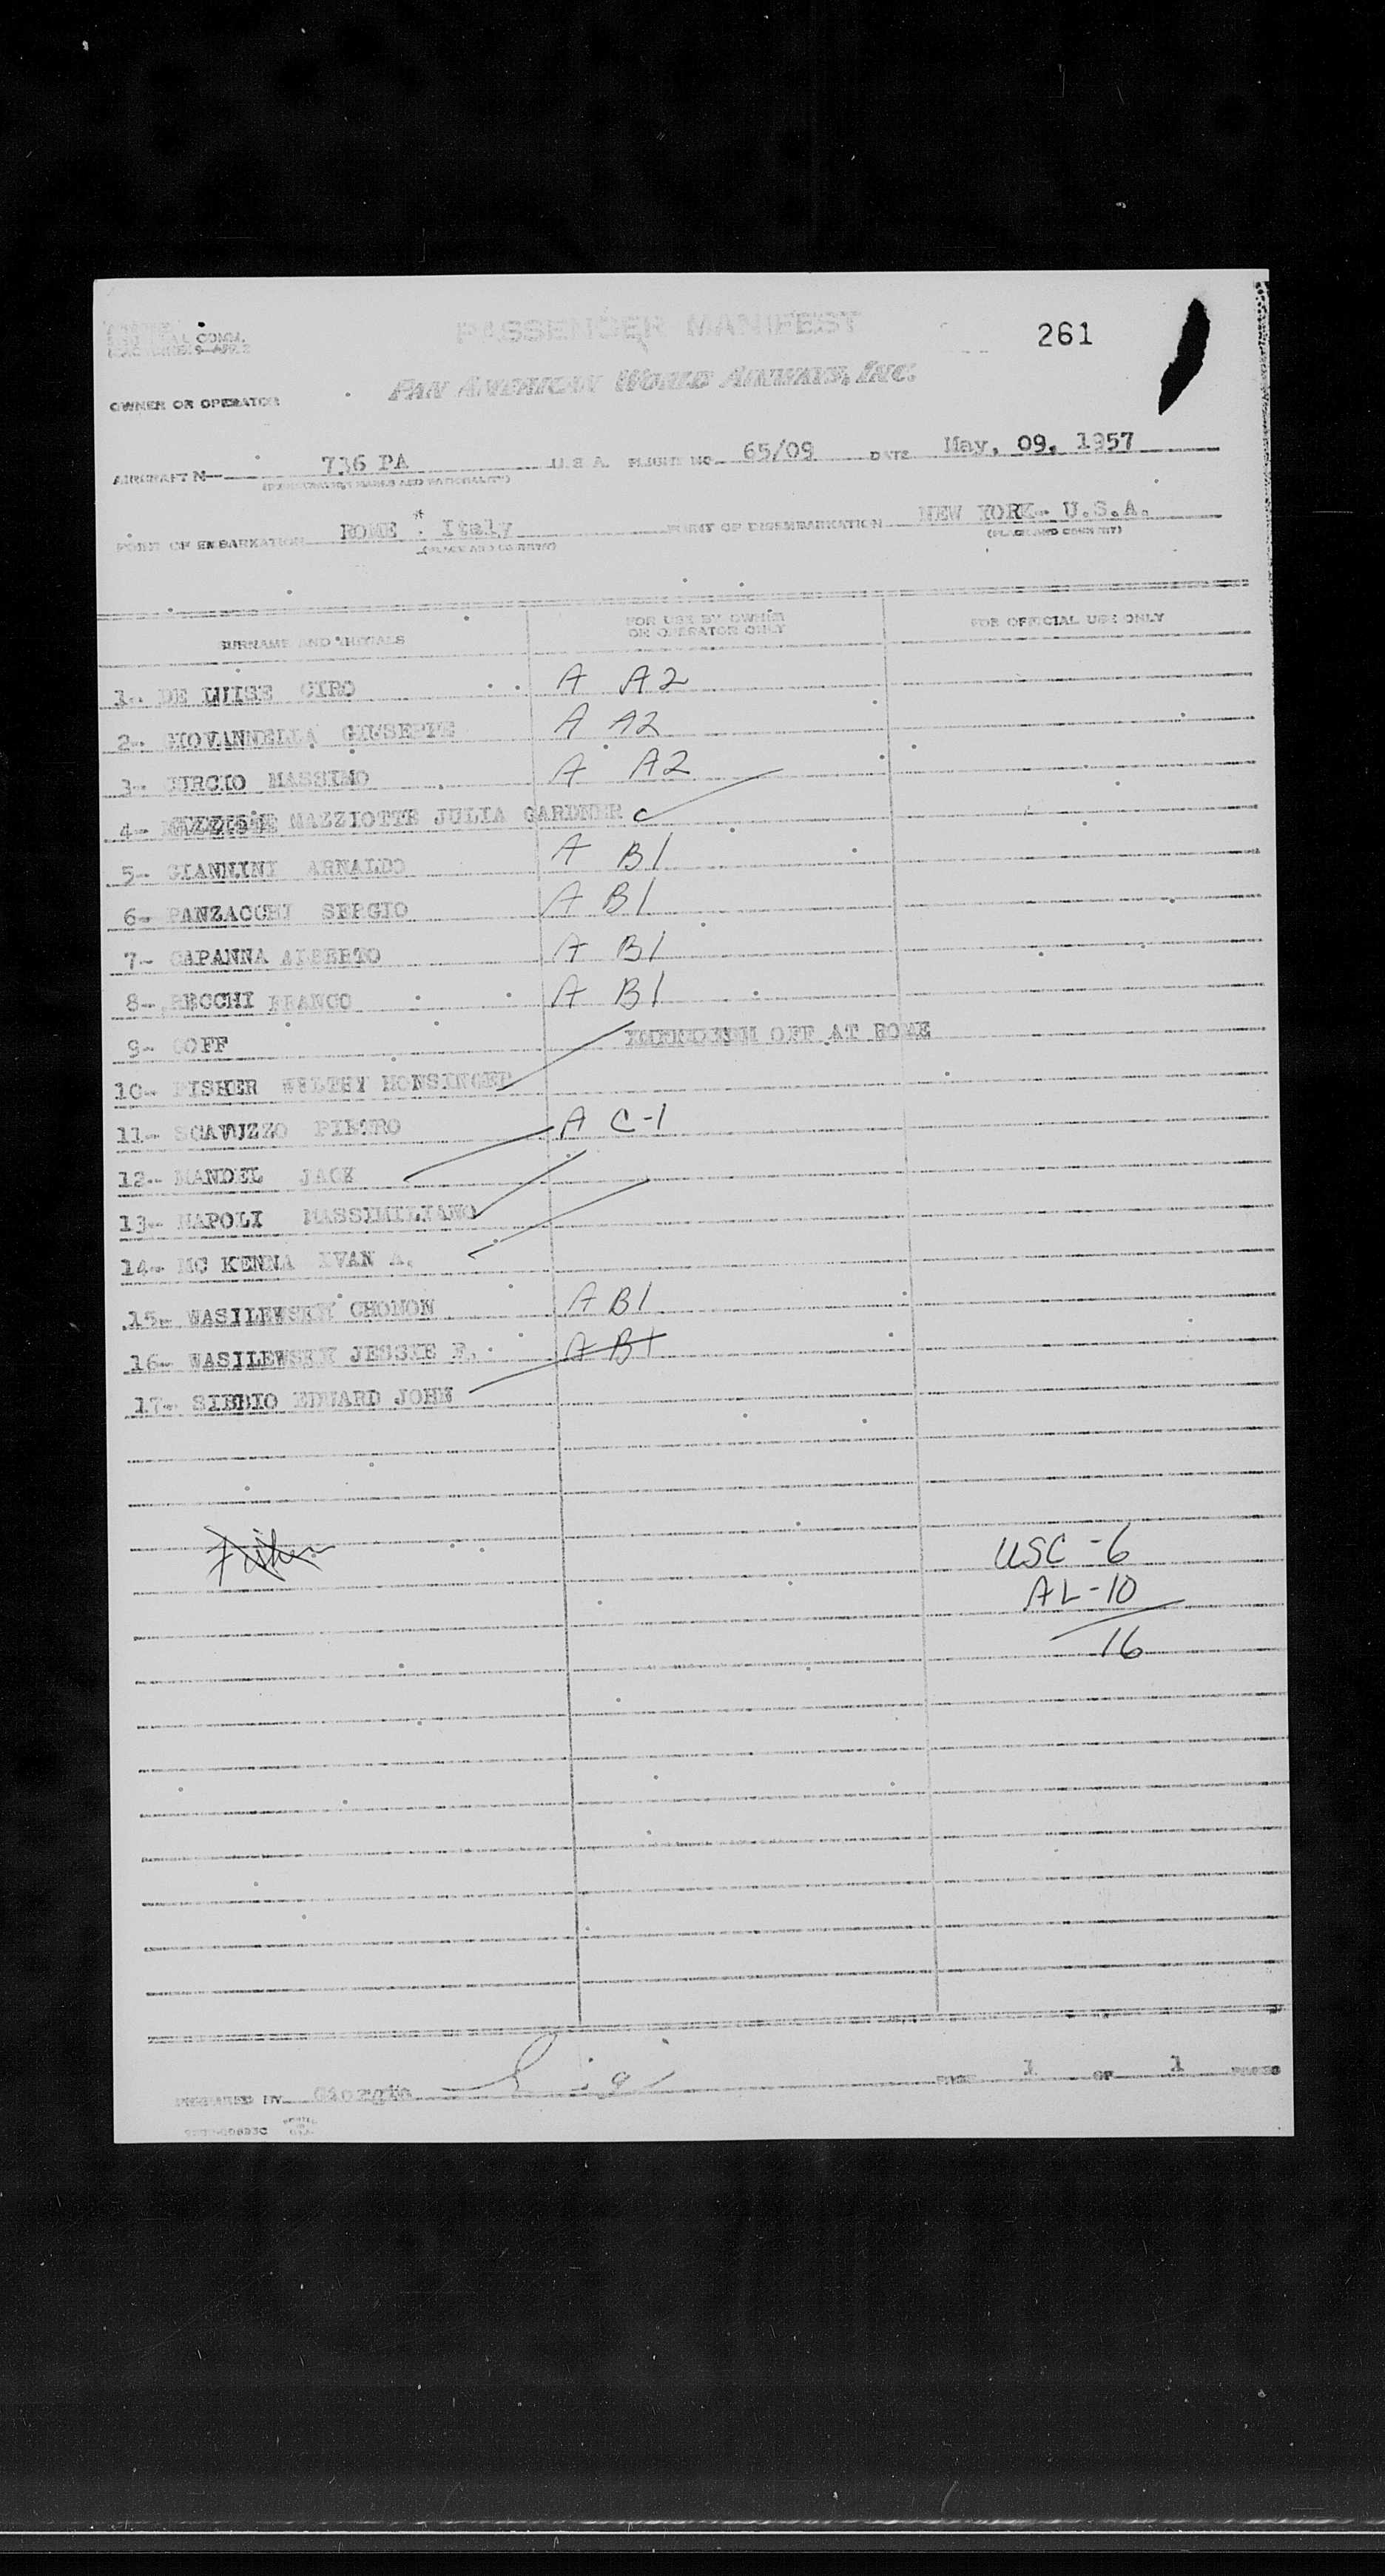 PASSENGER MANIFEST
261
PAN AMERICAN WORLD AIRWAYS, INC.
OWNER OR OPERATOR
AIRCRAFT N— 736 PA U.S.A. FLIGHT NO. 65/09 DATE May, 09, 1957
(REGISTRATION MARKS AND NATIONALITY)
POINT OF EMBARKATION ROME Italy POINT OF DISEMBARKATION NEW YORK- U.S.A.
(PLACE AND COUNTRY) (PLACE AND COUNTRY)
SURNAME AND INITIALS FOR USE BY OWNER OR OPERATOR ONLY FOR OFFICIAL USE ONLY
1- DE LUISE CIRO A A2
2- GIUSEPPE A A2
3- MASSIMO A A2
4- MAZZIOTTE JULIA GARDNER C
5- GIANNINI ARNALDO A B1
6- PANZACCHI SERGIO A B1
7- CAPANNA ALBERTO A B1
8- FRANCO A B1
9- GOFF OFF AT ROME
10- FISHER WELTHY HONSINGER
11- SCAVUZZO PIETRO A C-1
12- MANDEL JACK
13- NAPOLI MASSIMILIANO
14- MC KENNA IVAN A.
15- WASILEWSKY CHOMON A B1
16- WASILEWSKY JESSIE F. A B1
17- SIBBIO EDWARD JOHN
Fisher
USC -6
AL-10
16
PREPARED BY Giorgio PAGE 1 OF 1 PAGES